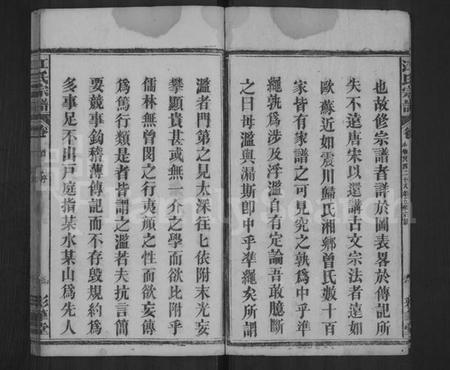 也故修宗譜者詳於圖表畧於傳記所
失不遠唐宋以還講古文宗法者遠如
歐蘇近如震川歸氏湘鄉曾氏數十百
家皆有家譜之可見究之孰為中乎準
繩孰為涉及浮濫自有定論吾敢臆斷
之曰毋濫與漏斯卽中乎準繩矣所謂
濫者門第之見太深往匕依附末光妄
攀顯貴甚或無一介之學而欲比附乎
儒林無曾閔之行夷頑之性而欲妄傳
為篤行類是者皆謂之濫若夫抗言簡
要競事鈎稽薄傳記而不存毀規約為
多事足不出戶庭指某水某山為先人
江氏宗譜
卷
江氏宗譜
卷
彭
堂
FamilySearch